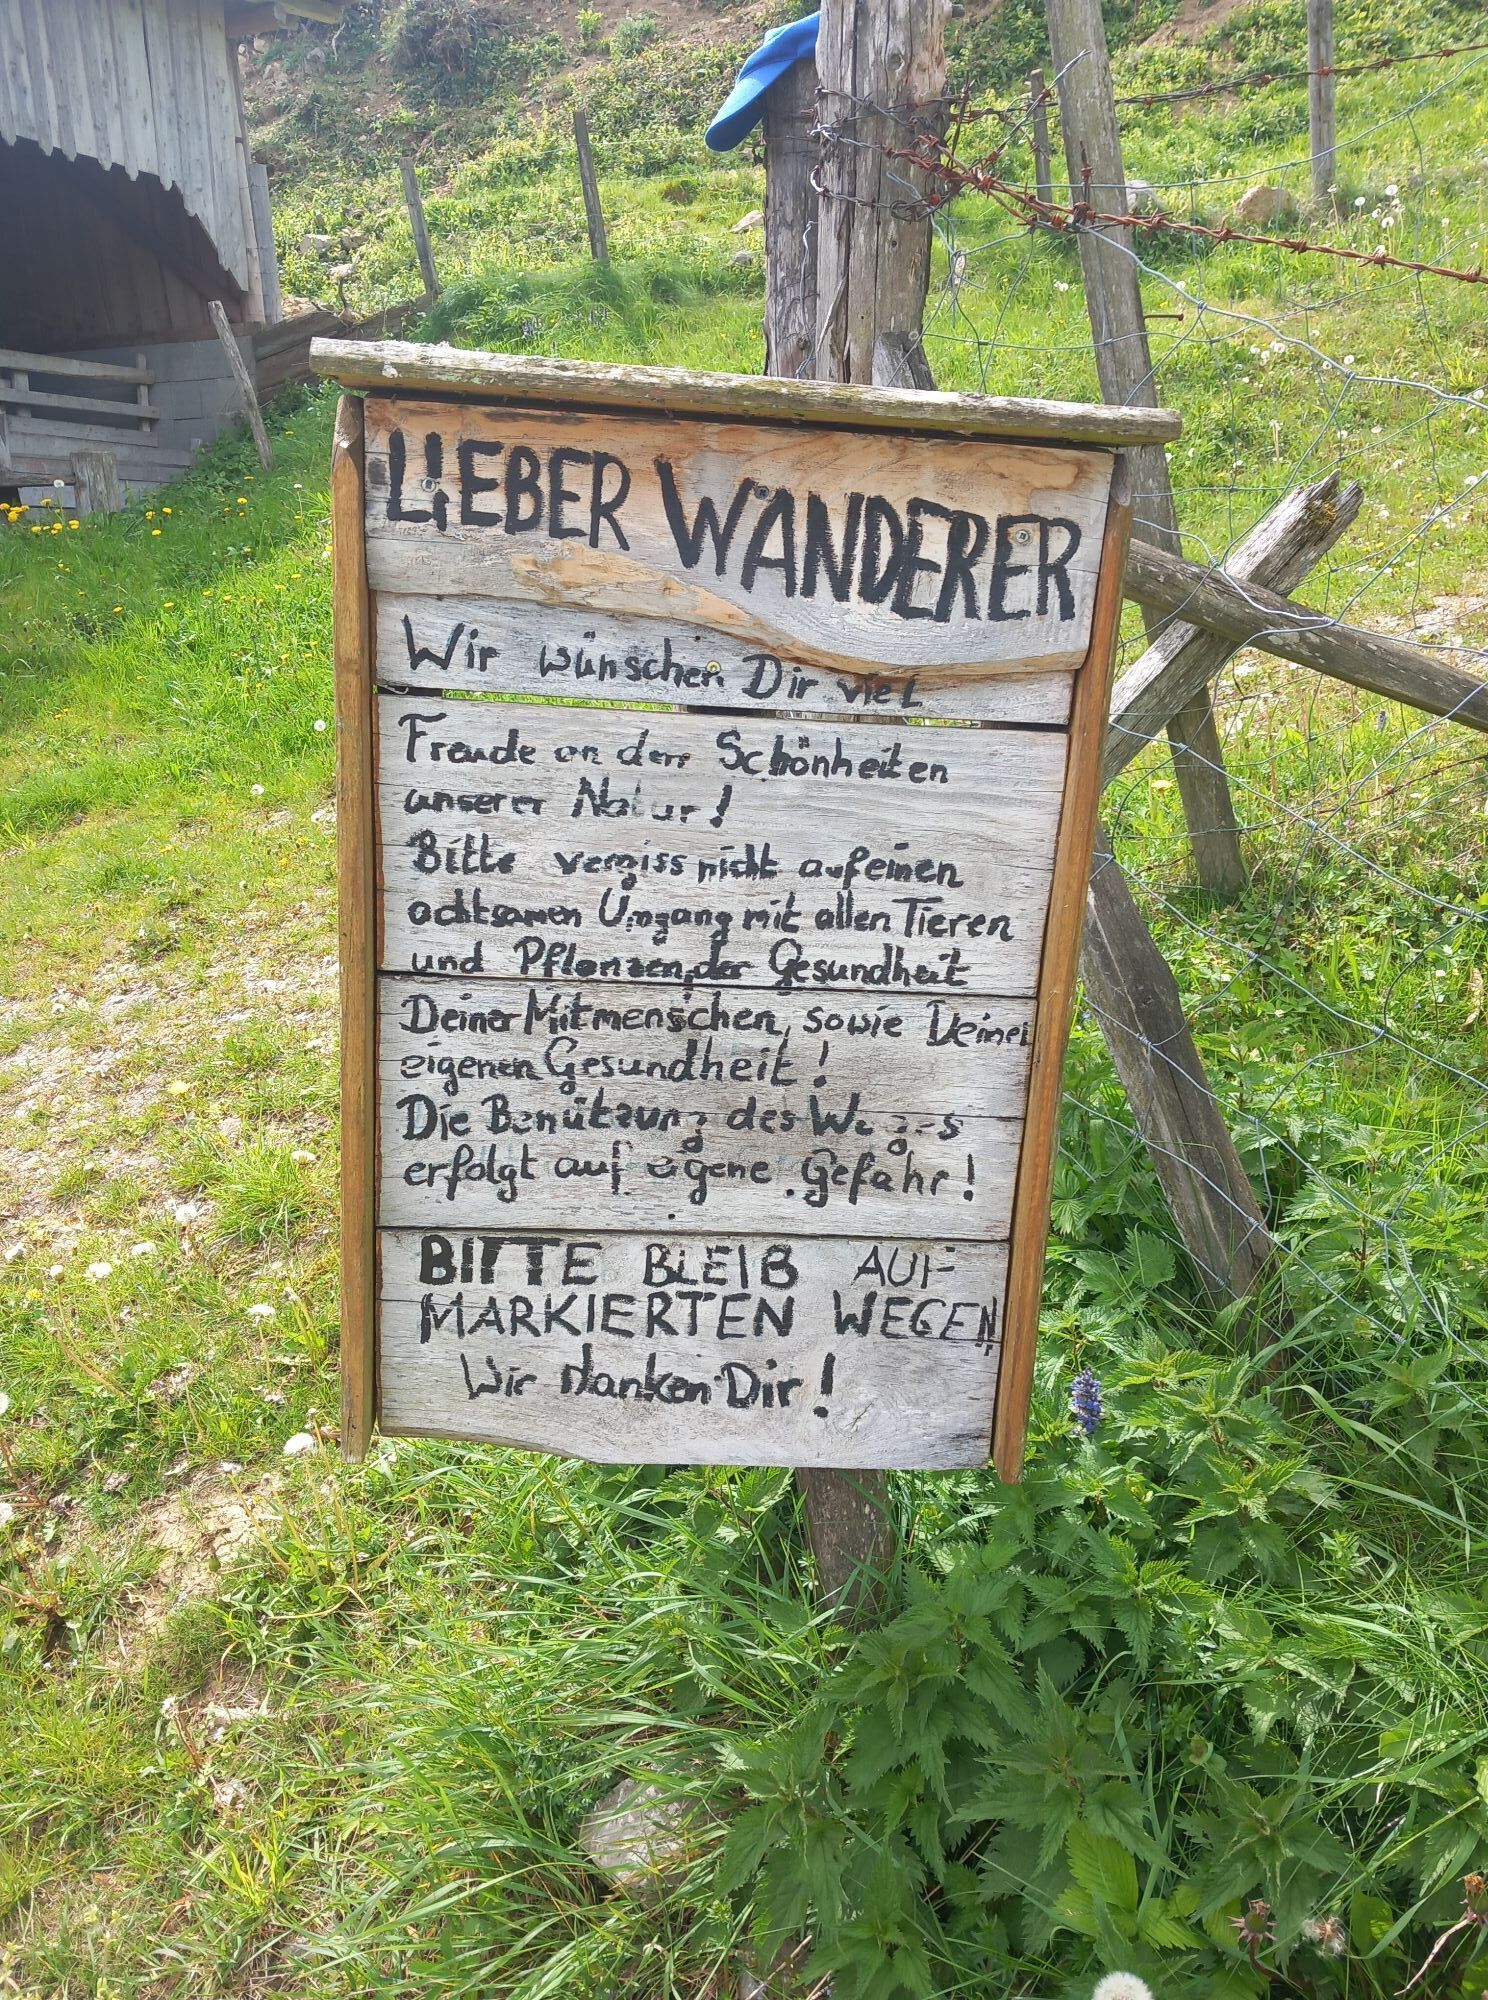 LIEBER WANDERER
Wir wünschen Dir viel
Freude an den Schönheiten
unserer Natur!
Bitte vergiss nicht auf einen
achtsamen Umgang mit allen Tieren
und Pflanzen, der Gesundheit
Deiner Mitmenschen, sowie Deiner
eigenen Gesundheit!
Die Benützung des Weges
erfolgt auf eigene Gefahr!
BITTE BLEIB AUF
MARKIERTEN WEGEN
Wir danken Dir!